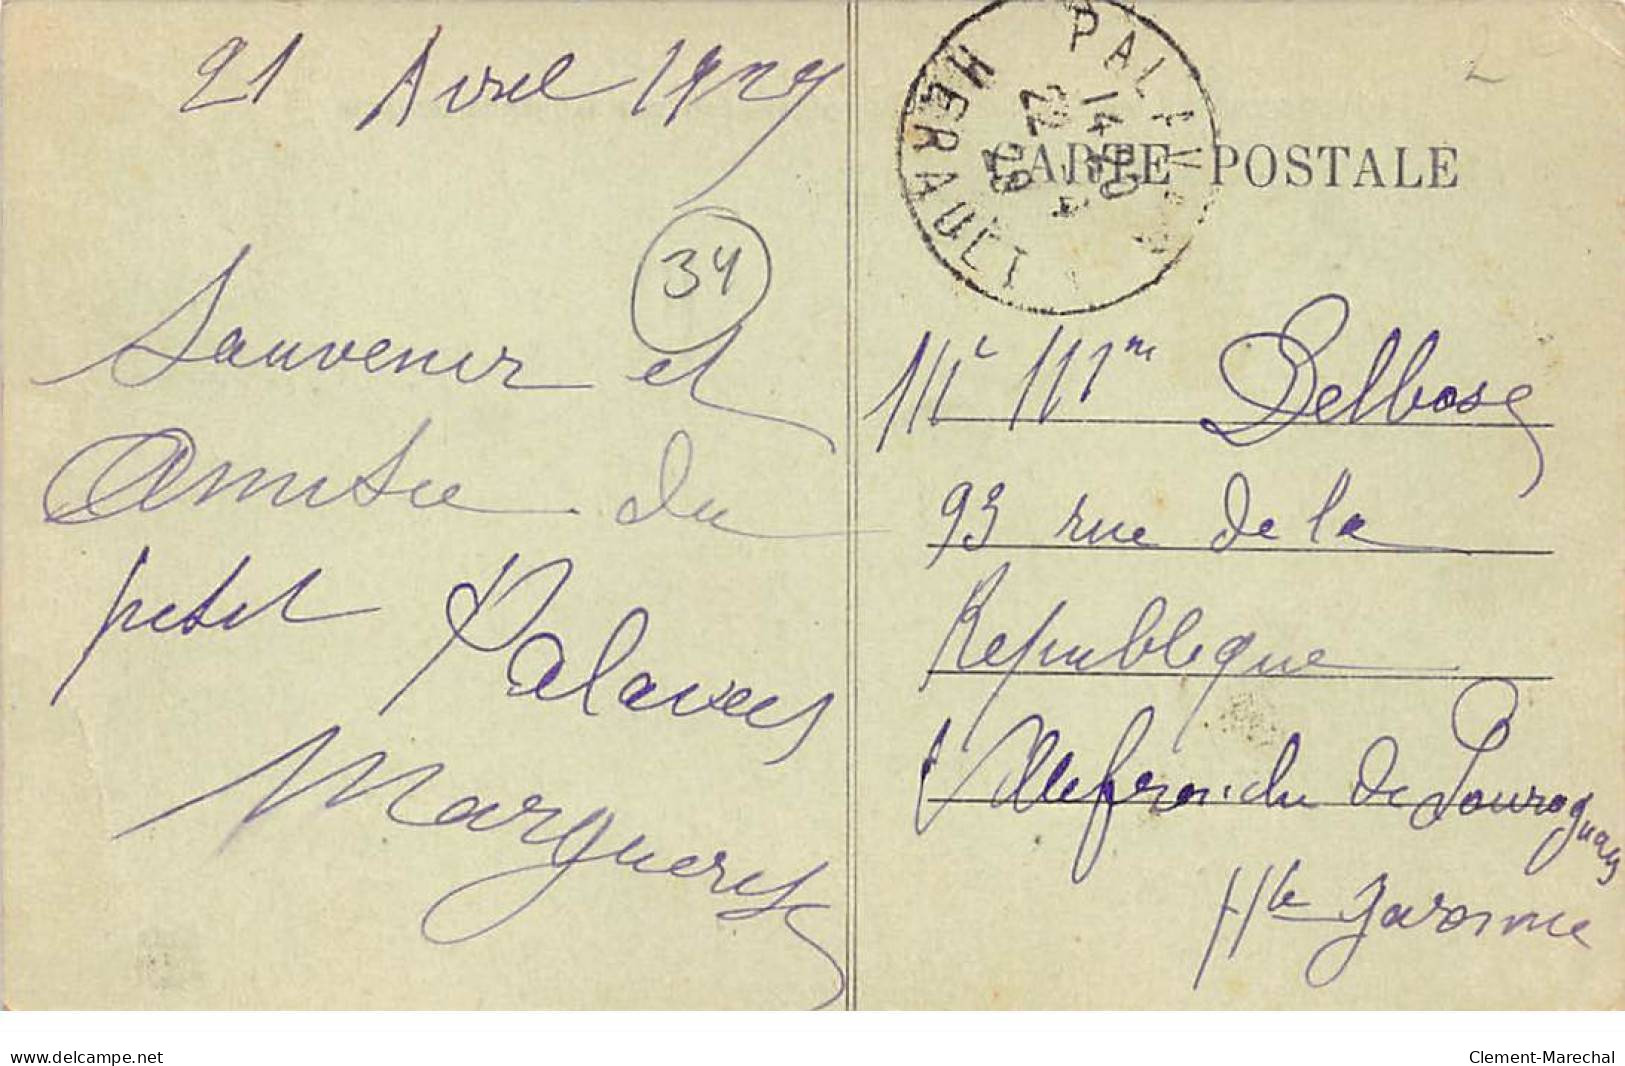 21 Avril 1929
34
Souvenir et
Amitie du
petit Palavas
Marguerite
2
PALAVAS
HERAULT
14 40
22 4
29
CARTE POSTALE
Mr Mme Delbosc
93 rue de la
Republique
Villefranche de Lauragais
Hte Garonne
delcampe.net
Clement-Marechal